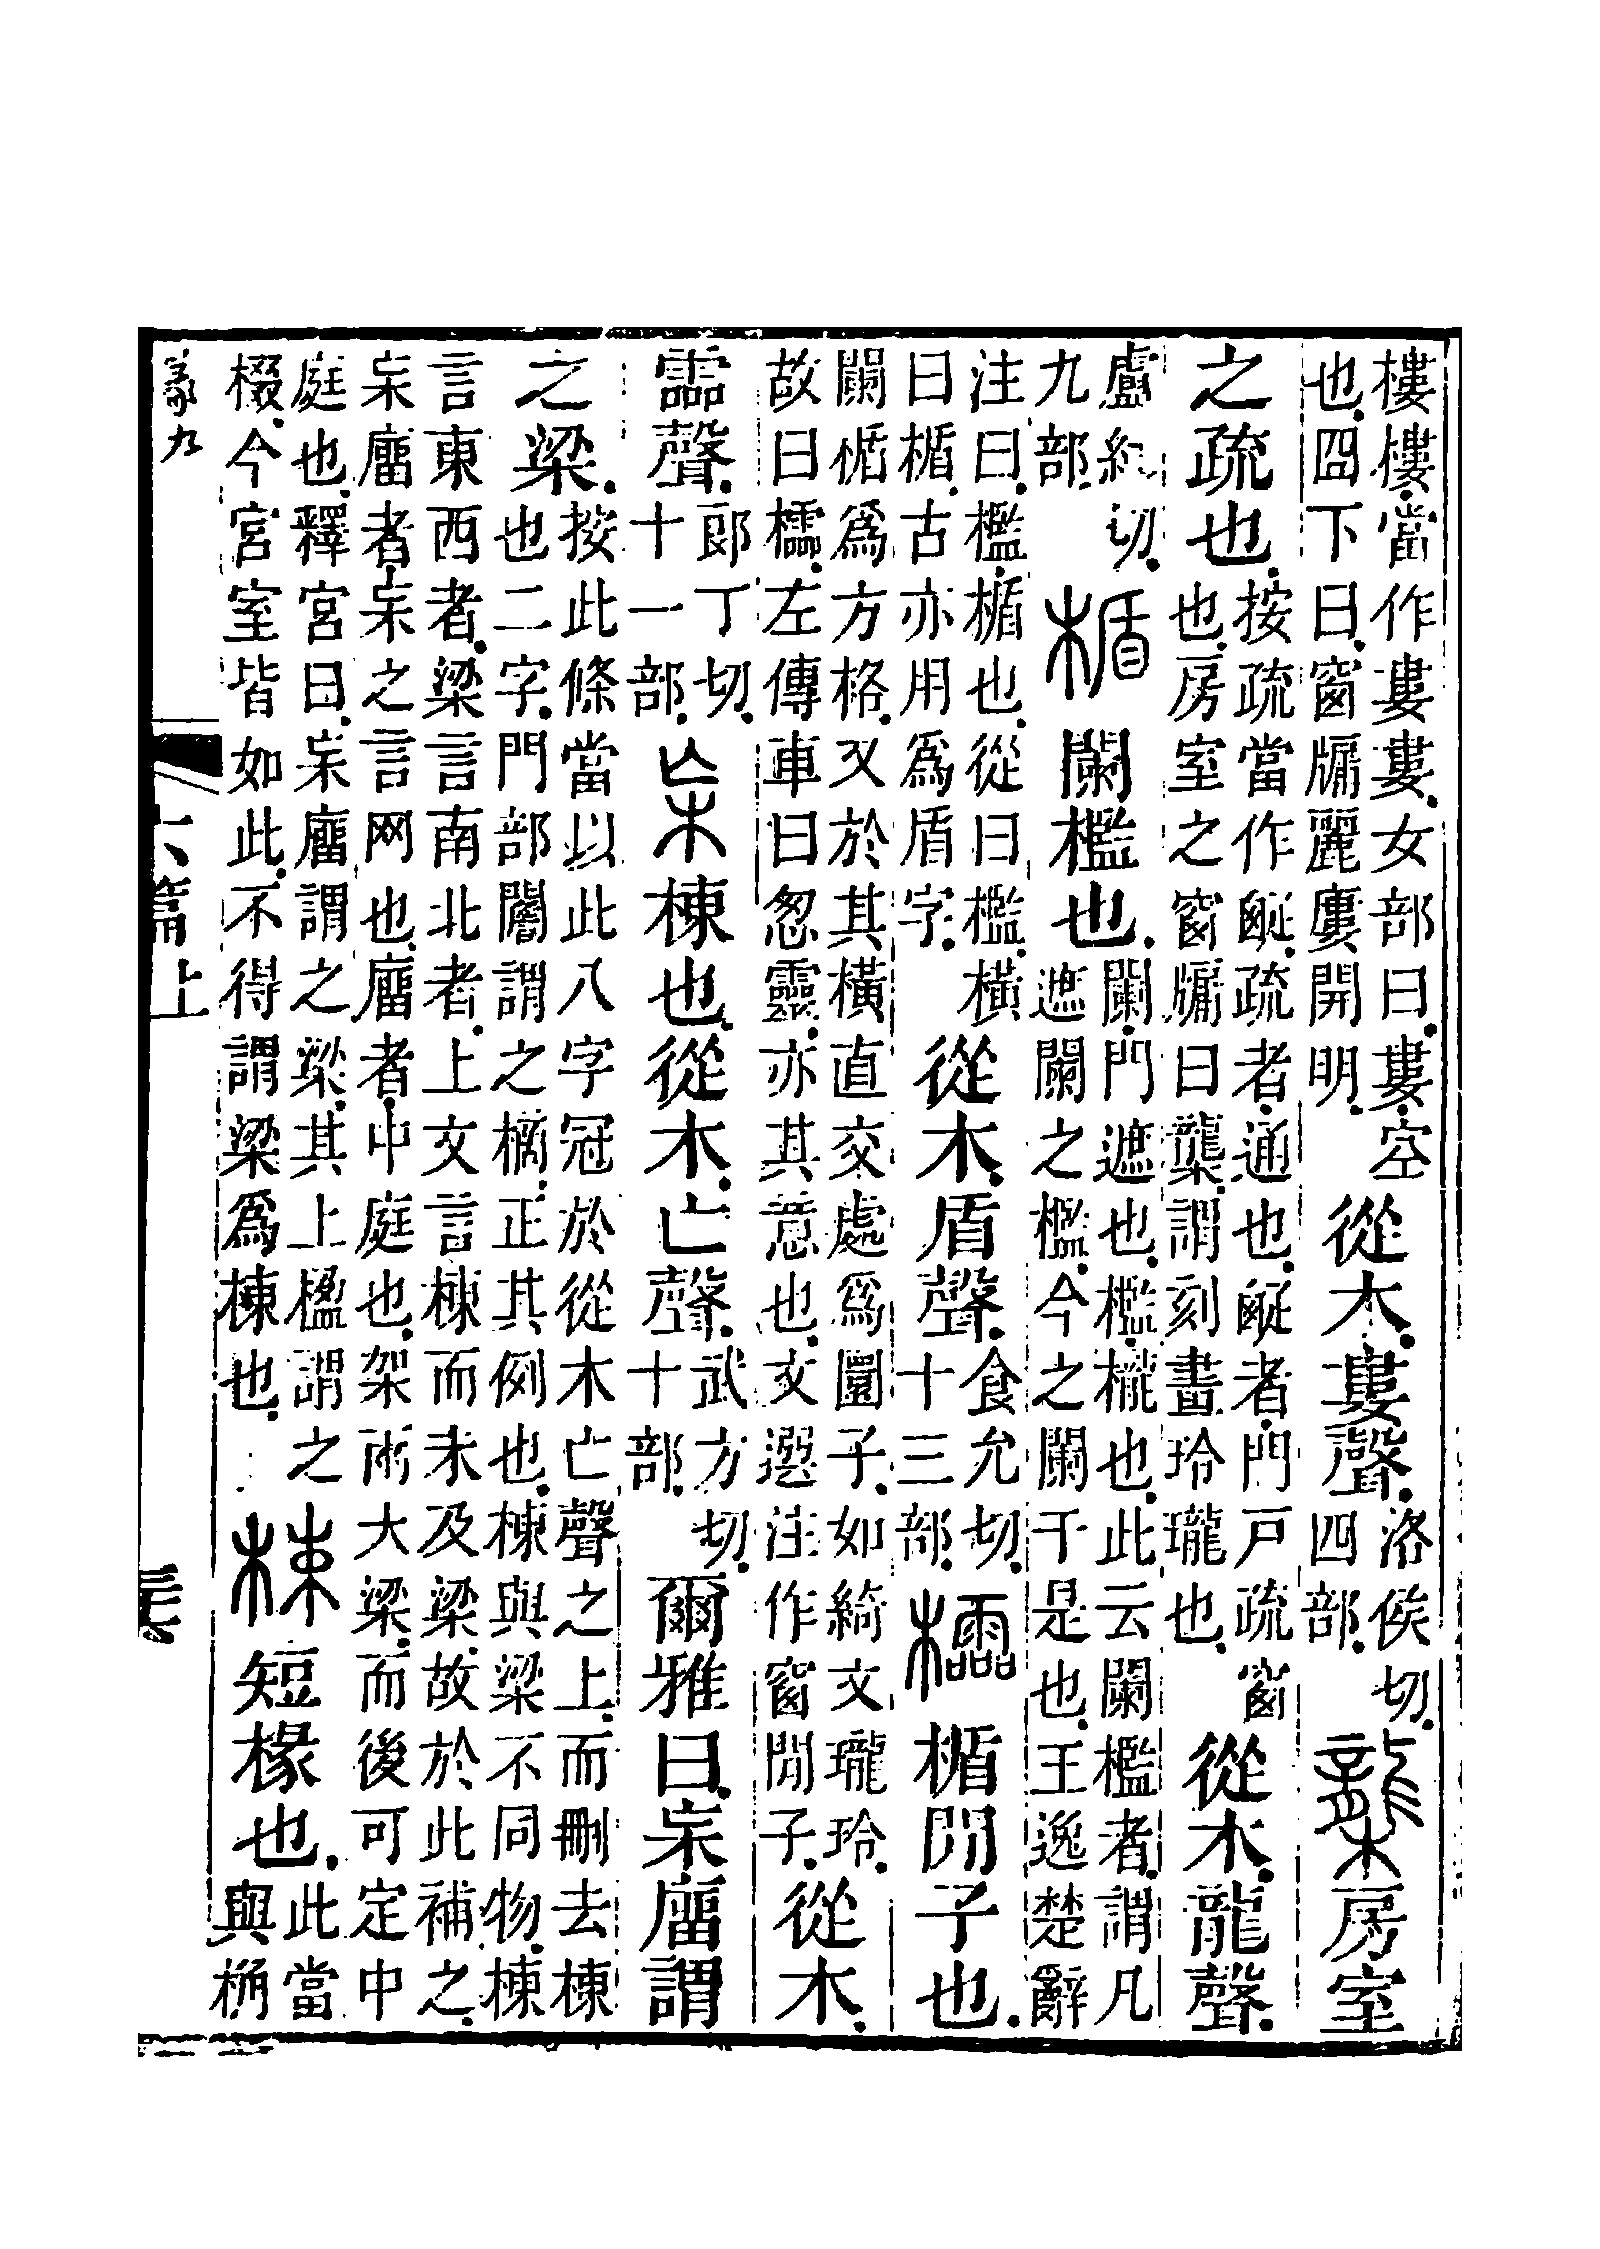 樓樓.當作婁婁.女部曰.婁.空
也.囧下曰.窗牖麗廔開明.
從木.婁聲.
洛侯切.
四部.
㰍房室
之疏也.
按疏當作𤕟.疏者.通也.𤕟者.門戶疏窗
也.房室之窗牖曰㰍.謂刻畫玲瓏也.
從木.龍聲.
盧紅切.
九部.
楯闌檻也.
闌.門遮也.檻.櫳也.此云闌檻者.謂凡
遮闌之檻.今之闌干是也.王逸楚辭
注曰.檻.楯也.從曰檻.橫
曰楯.古亦用爲盾字.
從木.盾聲.
食允切.
十三部.
櫺楯閒子也.
闌楯爲方格.又於其橫直交處爲圜子.如綺文瓏玲.
故曰櫺.左傳車曰怱靈.亦其意也.文選注作窗閒子.
從木.
霝聲.
郎丁切.
十一部.
杗棟也.從木.亡聲.
武方切.
十部.
爾雅曰.杗廇謂
之梁.
按此條當以此八字冠於從木亡聲之上.而刪去棟
也二字.門部𨷲謂之樀.正其例也.棟與梁不同物.棟
言東西者.梁言南北者.上文言棟而未及梁.故於此補之.
杗廇者.杗之言网也.廇者.中庭也.架㒳大梁.而後可定中
庭也.釋宮曰.杗廇謂之梁.其上楹謂之
棳.今宮室皆如此.不得謂梁爲棟也.
梀短椽也.
此當
與桷
六篇上